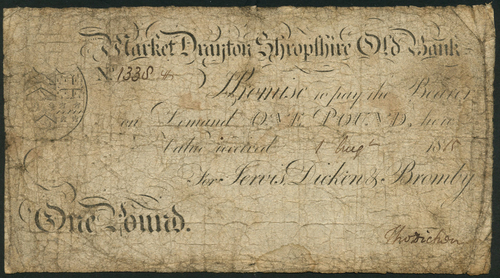 Market Drayton Shropshire Old Bank
No. 1338
I Promise to pay the Bearer
on Demand ONE POUND, here
Value received 1 Augt 1818
For Jervis, Dicken & Bromby
One Pound.